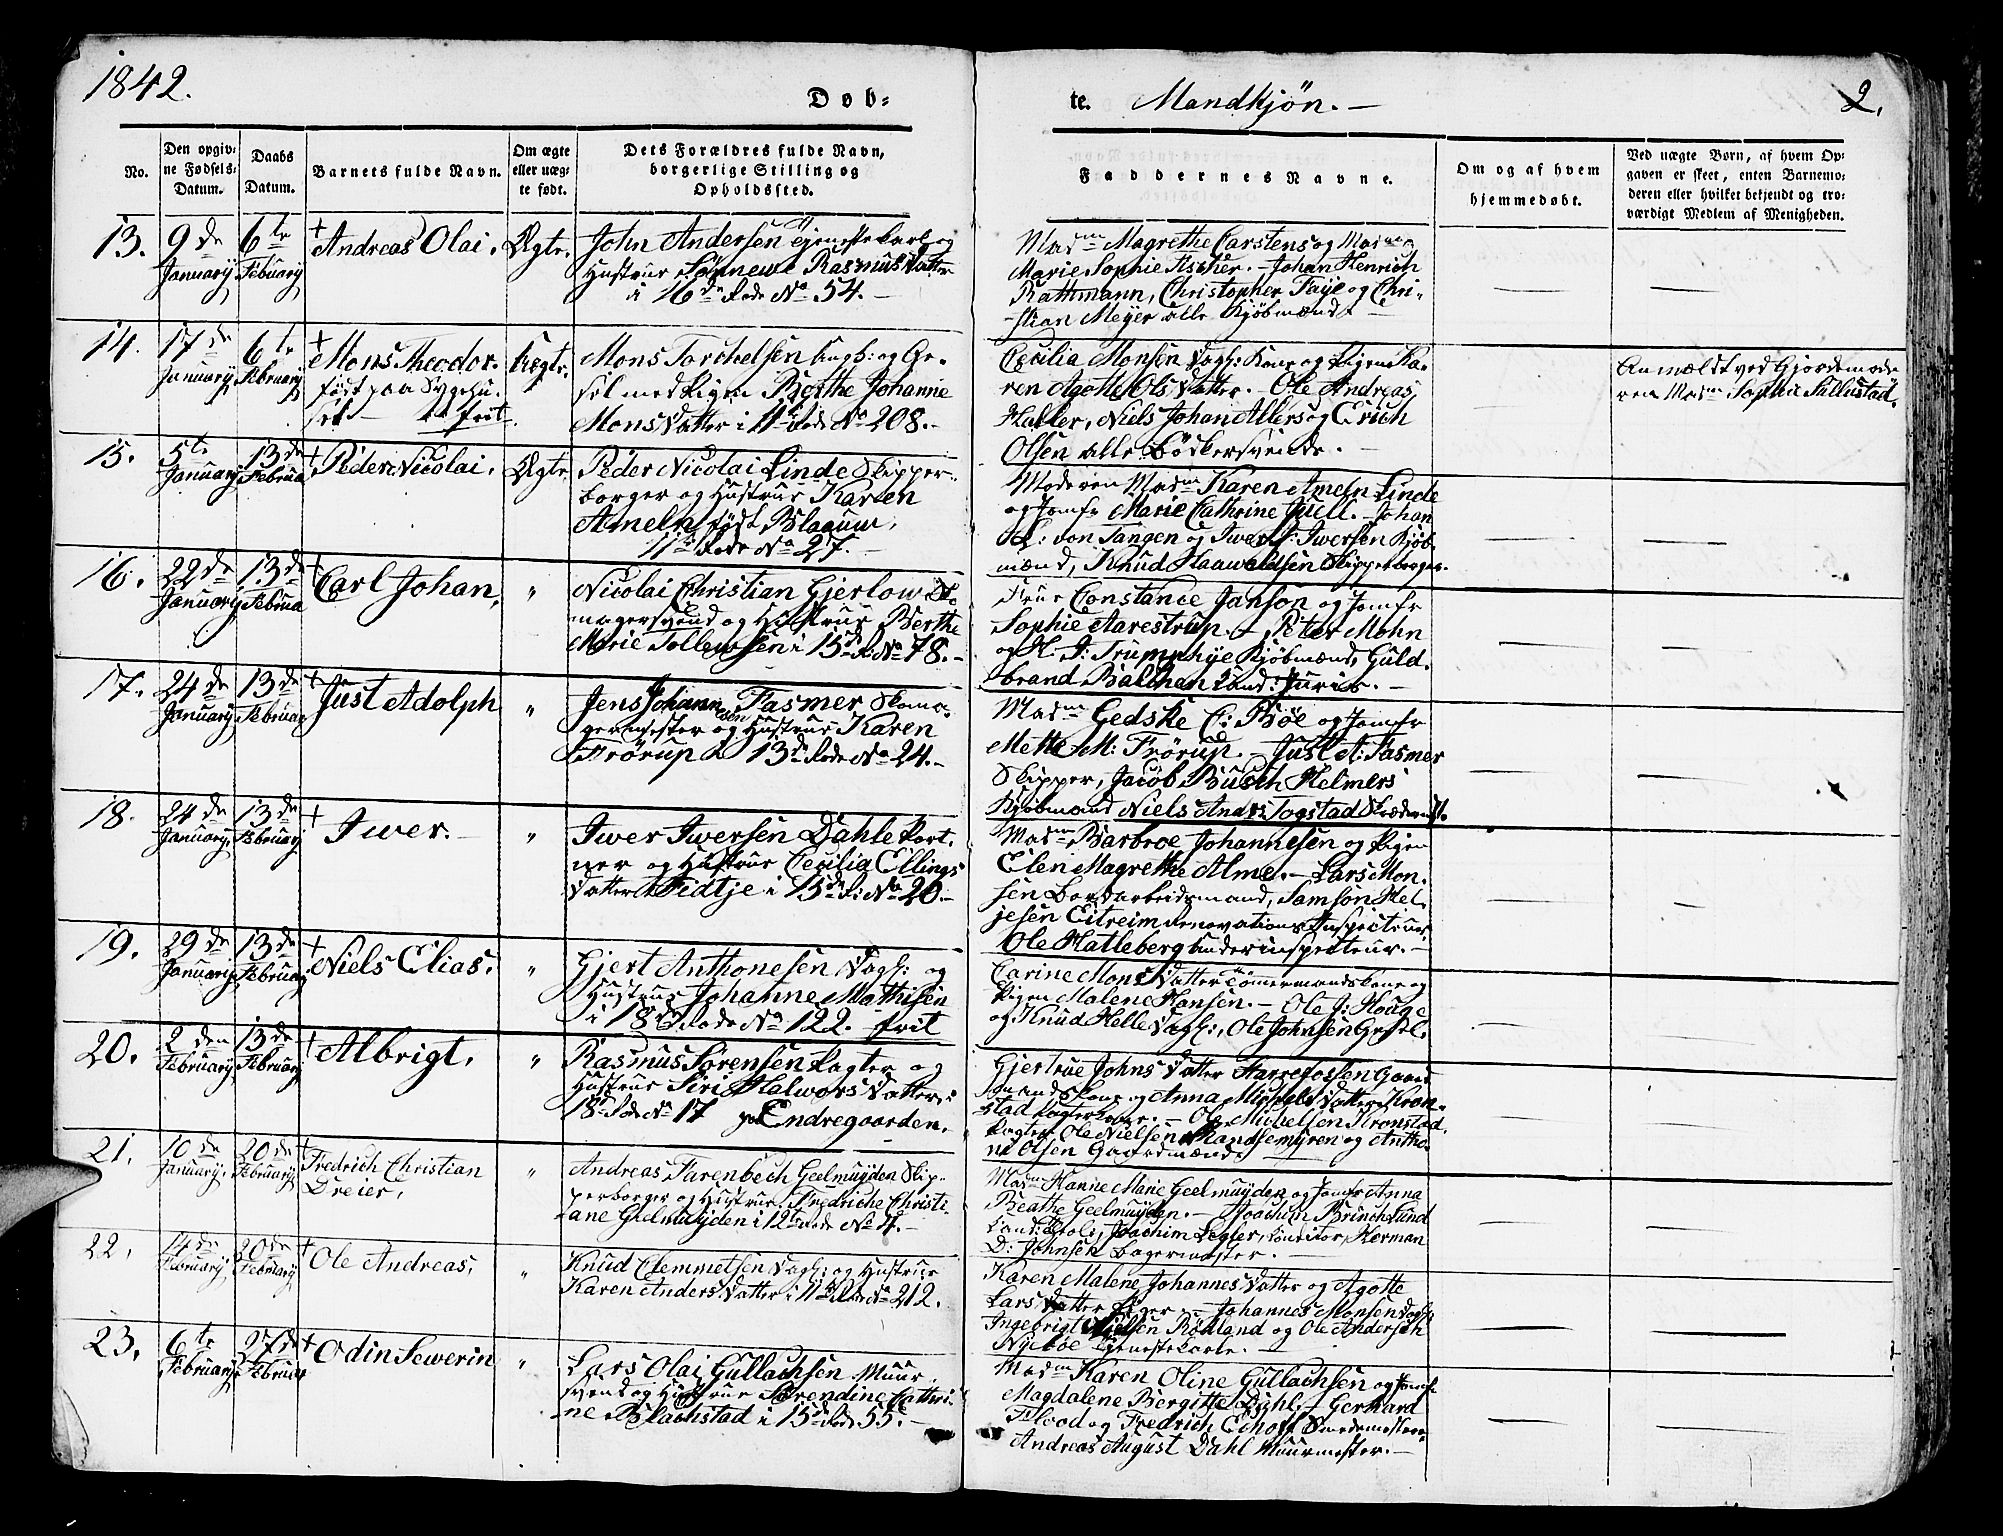 1842.
Døb-
te. Mandkjøn. —
2.
No.
Den opgiv-
ne Fødsels-
Datum.
Daabs
Datum.
Barnets fulde Navn.
Om ægte
eller uæg-
te født.
Dets Forældres fulde Navn,
borgerlige Stilling og
Opholdssted.
Faddernes Navne.
Om og af hvem
hjemmedøbt.
Ved uægte Børn, af hvem Op-
gaven er skeet, enten Barnemo-
deren eller hvilket bekjendt og tro-
værdigt Medlem af Menigheden.
13.
9de
January
6te
Febuary
+
Andreas Olai.
Ægte.
John Andersen Tjenestekarl og
Hustrue Sønnewe Rasmusdatter
i 16de Rode No 54. —
Madme Magrethe Carstens og Madme
Marie Sophie Ascher. — Johan Henrich
Rathmann, Christopher Faye og Chri-
stian Meyer alle Kjøbmænd. —
14.
17de
January
6te
February
+
Mons Theodor.
født paa Sygehu-
set — frit
Uægte.
Mons Torchelsen Ungk: og Ge-
sel med Pigen Berthe Johanne
Monsdatter i 11te Rode No 208. —
Cecilia Monsen Dagk: Kone og Pigen Ka-
ren Agotte Olsdatter. — Ole Andreas
Haller, Niels Johan Allers og Erich
Olsen alle Bödkersvende. —
Anmældt ved Gjordemode-
ren Madme Sophie Sillustad.
15.
5te
January
13de
Februa
+
Peder Nicolai.
Ægte
Peder Nicolai Linde Skipper-
borger og Hustrue Karen
Ameln født Blaauw,
11te Rode No 27. —
Moderen Madme Karen Ameln Linde
og Jomfr Marie Cathrine Juell. — Johan
L: von Tangen og Iwer J: Iwersen Kjøb-
mænd, Knud Haawaldsen Skipperborger.
16.
22de
January
13de
Februa
+
Carl Johan,
"
Nicolai Christian Gjerlow Sko-
magersvend og Hustrue Berthe
Marie Tollewsen i 15de Ro No 78. —
Frue Constance Janson og Jomfr
Sophie Aarestrup. — Peter Mohn
og H. J: Trumphye Kjøbmænd, Guld-
brand Balchen Cand: Juris. —
17.
24de
January
13de
Februar
+
Just Adolph
"
Jens Johannesen Fasmer Skoma-
germester og Hustrue Karen
Frörup i 13de Rode No 24. —
Madme Gedske C: Böe og Jomfr
Mette M: Frörup. — Just A: Fasmer
Skipper, Jacob Busch Helmers
Kjøbmand Niels Anders Togstad Skræderm
18.
24de
January.
13de
February
+
Iwer. —
"
Iwer Iwersen Dahle Port-
ner og Hustrue Cecilia Ellings-
datter Fidtje i 15de R: No 20. —
Madme Barbroe Johannesen og Pigen
Elen Magrethe Alme. — Lars Mon-
sen Bordarbeidsmand, Samson Hel-
jesen Eitreim Renovations Inspecteur,
Ole Hatleberg Underinspecteur. —
19.
29de
January
13de
Februar
+
Niels Elias,
"
Gjert Anthonesen Dagk: og
Hustrue Johanne Mathisen
i 18de Rode No 122. frit
Carine Monsdatter Tömmermandskone og
Pigen Malene Hansen. — Ole J: Houge
og Knud Helle Dagk:, Ole Johnsen Gesel.
20.
2den
February
13de
February
+
Albrigt,
"
Rasmus Sörensen Pagter og
Hustrue Siri Halworsdatter, i
18de Rode No 17 på Endregaarden.
Gjertrue Johnsdatter Harrefossen Gaard-
mandskone og Anna Michelsdatter Kron-
stad Pagterkone. — Ole Michelsen Kronstad
Pagter, Ole Nielsen Randsemyren og Antho-
ni Olsen Gaardmænd.
21.
10de
January,
20de
February
+
Fredrich Christian
Dreier,
"
Andreas Farenbech Geelmuyden Skip-
perborger og Hustrue Fredriche Christi-
ane Gielmuyden i 12te Rode No 4. —
Madme Hanne Marie Geelmuyden og Jomfr Anna
Beathe Geelmuyden. — Joachim Brinch Lund
Cand: Theol:, Joachim Legler, Conditor, Herman
D: Johnsen Bagermester. —
22,
14de
February
20de
February
+
Ole Andreas,
"
Knud Clemmetsen Dagk: og Hustrue
Karen Andersdatter i 11te Rode No 212.
Karen Malene Johannesdatter og Agotte
Larsdatter Piger. — Johannes Monsen Dagk:,
Ingebrigt Nielsen Rödland og Ole Andersen
Nyeboe Tjenestekarle. —
23,
6te
February
27de
Februar
+
Odin Sewerin
"
Lars Olai Gullachsen Muur-
svend og Hustrue Sörendine Cathri-
ne Blachstad i 15de Rode 55. —
Madme Karen Oline Gullachsen og Jomfr
Magdalene Bergitte Dyhl. — Gerhard
Flood og Fredrich Echoff Smedemestere
Andreas August Dahl Muurmester. —